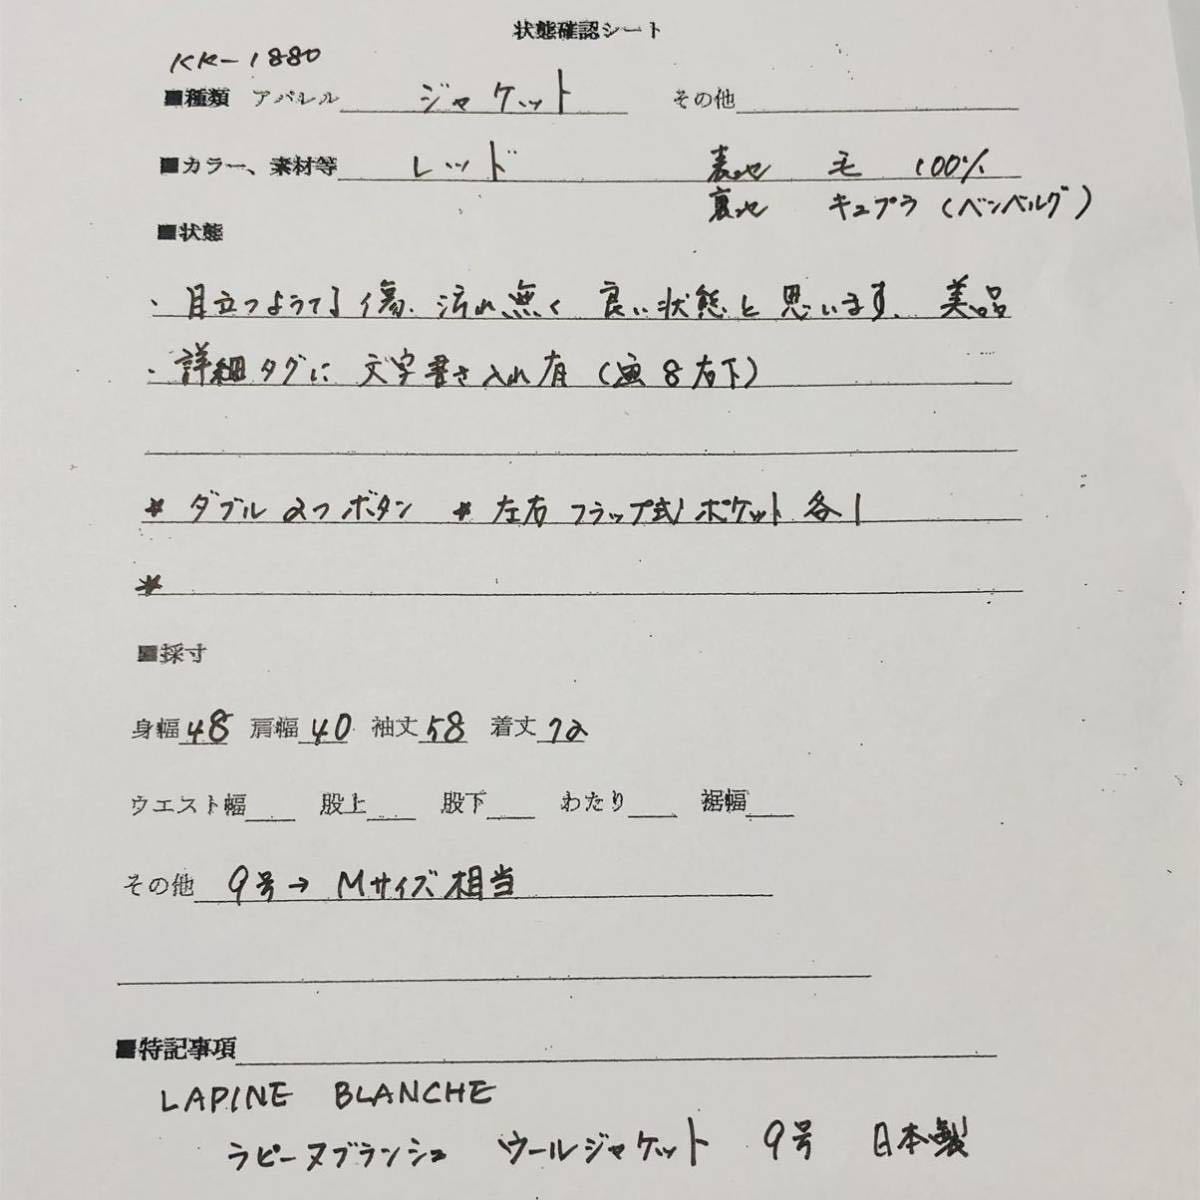 状態確認シート
KK-1880
■種類 アパレル ジャケット その他
■カラー、素材等 レッド 表地 毛 100%
裏地 キュプラ (ベンベルグ)
■状態
・目立つような傷、汚れ無く 良い状態と思います。 美品
・詳細タグに 文字書き入れ有 (画8右下)
* ダブル 2つボタン * 左右 フラップ式ポケット 各1
*
■採寸
身幅 48 肩幅 40 袖丈 58 着丈 72
ウエスト幅 股上 股下 わたり 裾幅
その他 9号→ Mサイズ相当
■特記事項
LAPINE BLANCHE
ラピーヌブランシュ ウールジャケット 9号 日本製